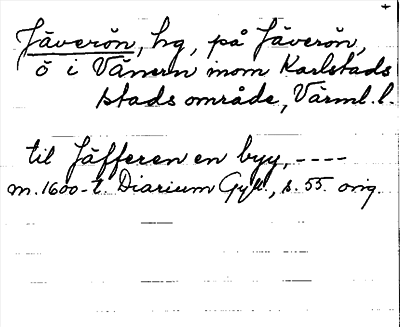 Jäverön, hg, på Jäverön,
ö i Vänern inom Karlstads
stads område, Värml. l.
til Jäfferen en byy, ----
m. 1600-t. Diarium Gyll., s. 55. orig.